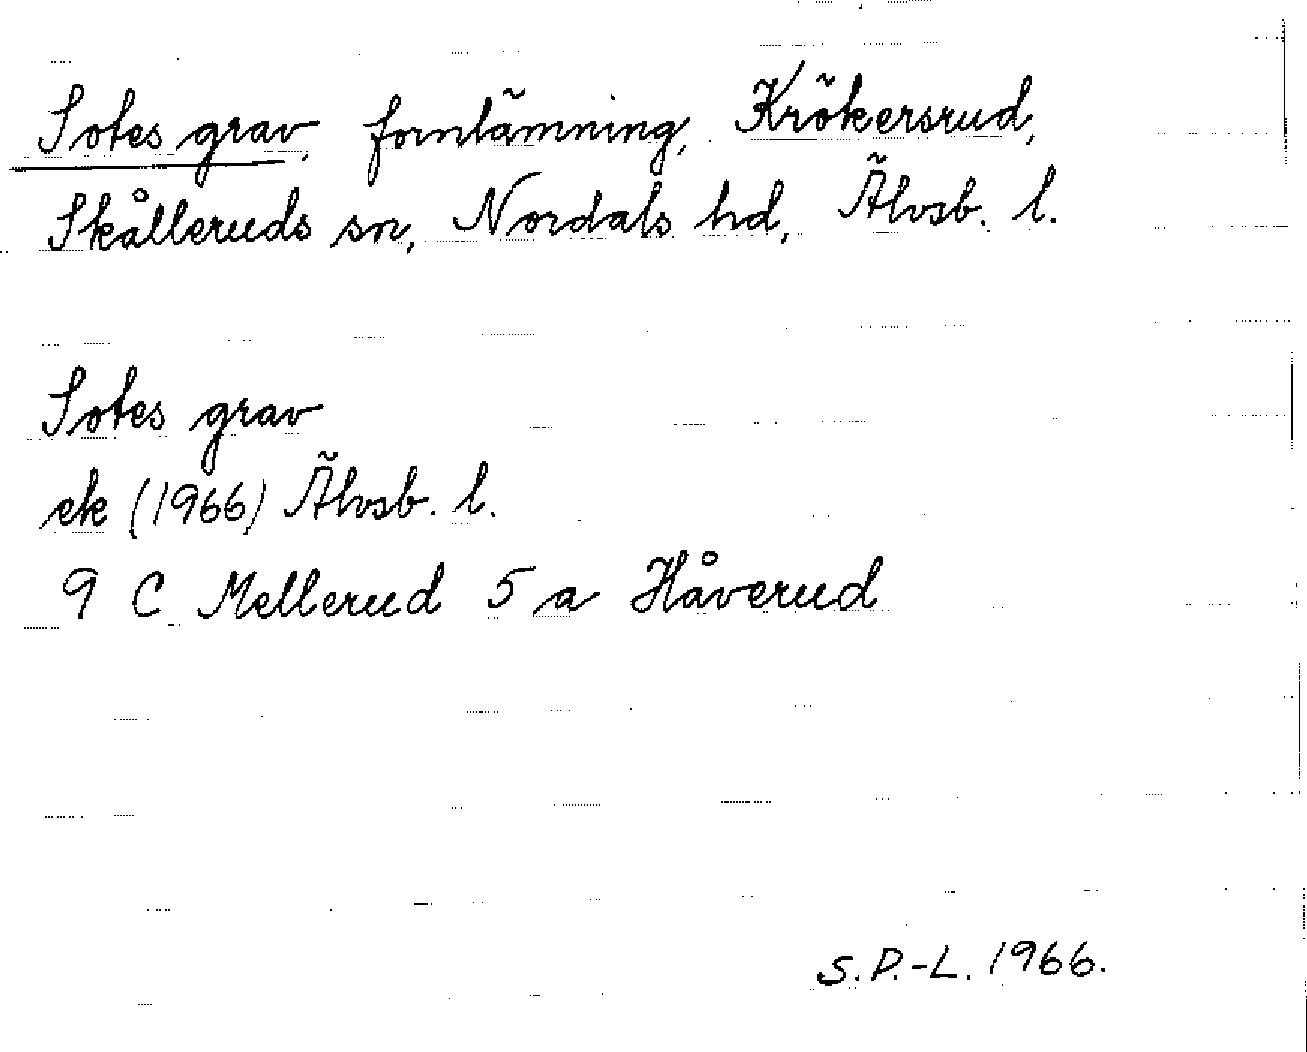 Sotes grav, fornlämning, Krökersrud,
Skålleruds sn, Nordals hd, Älvsb. l.
Sotes grav
ek (1966) Älvsb. l.
9 C Mellerud 5 a Håverud
S.P.-L. 1966.